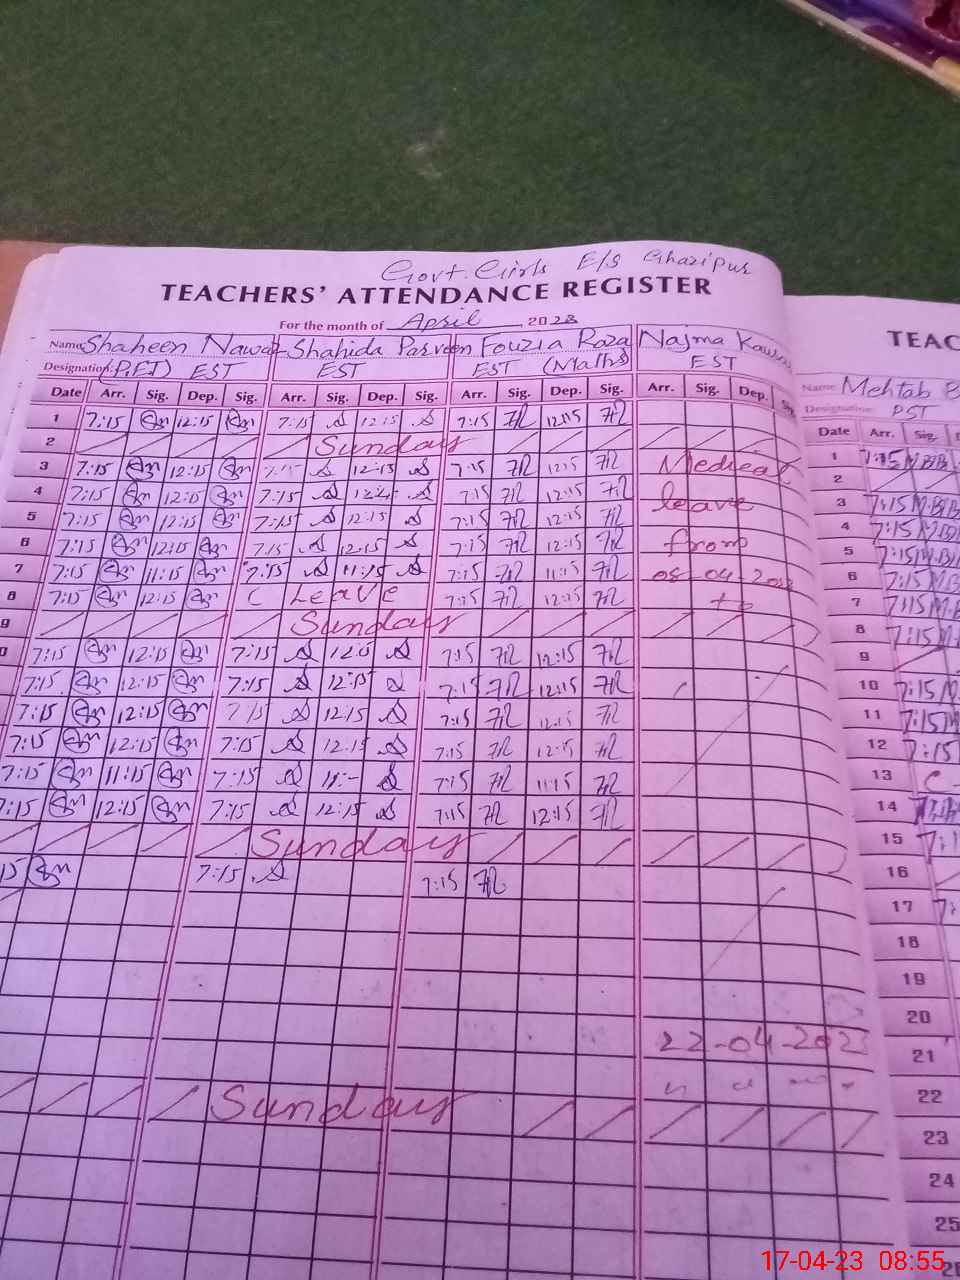 Govt. Girls E/S Ghazipur
TEACHERS' ATTENDANCE REGISTER
For the month of April 2023
Name Shaheen Nawaz Shahida Parveen Fouzia Raza Najma Kausar
Designation (P.E.T) EST EST EST (Maths) EST
Date Arr. Sig. Dep. Sig. Arr. Sig. Dep. Sig. Arr. Sig. Dep. Sig. Arr. Sig. Dep. Sig.
1 7:15 12:15 7:15 12:15 7:15 FR 12:15 FR
2 Sunday
3 7:15 12:15 7:15 12:15 7:15 FR 12:15 FR Medical
4 7:15 12:15 7:15 7:15 FR 12:15 FR leave
5 7:15 12:15 7:15 12:15 7:15 FR 12:15 FR
6 7:15 12:15 7:15 12:15 7:15 FR 12:15 FR from
7 7:15 11:15 7:15 11:15 7:15 FR 11:15 FR
8 7:15 12:15 C Leave 7:15 FR 12:15 FR to
9 Sunday
0 7:15 12:15 7:15 7:15 FR 12:15 FR
7:15 12:15 7:15 12:15 7:15 FR 12:15 FR
7:15 12:15 7:15 12:15 7:15 FR 12:15 FR
7:15 12:15 7:15 12:15 7:15 FR 12:15 FR
7:15 11:15 7:15 7:15 FR 11:15 FR
7:15 12:15 7:15 12:15 7:15 FR 12:15 FR
Sunday
15 7:15 7:15 FR
22-04-2023
Sunday
TEAC
Name Mehtab B
Designation PST
Date Arr. Sig.
1 7:15 M.BiB
2
3 7:15 M.Bi
4 7:15 M.Bi
5 7:15 M.Bi
6 7:15 M.B
7 7:15 M.B
8 7:15 M
9
10 7:15 M
11 7:15 M
12 7:15
13 C
14
15 7:1
16
17 7:
18
19
20
21
22
23
24
25
17-04-23 08:55